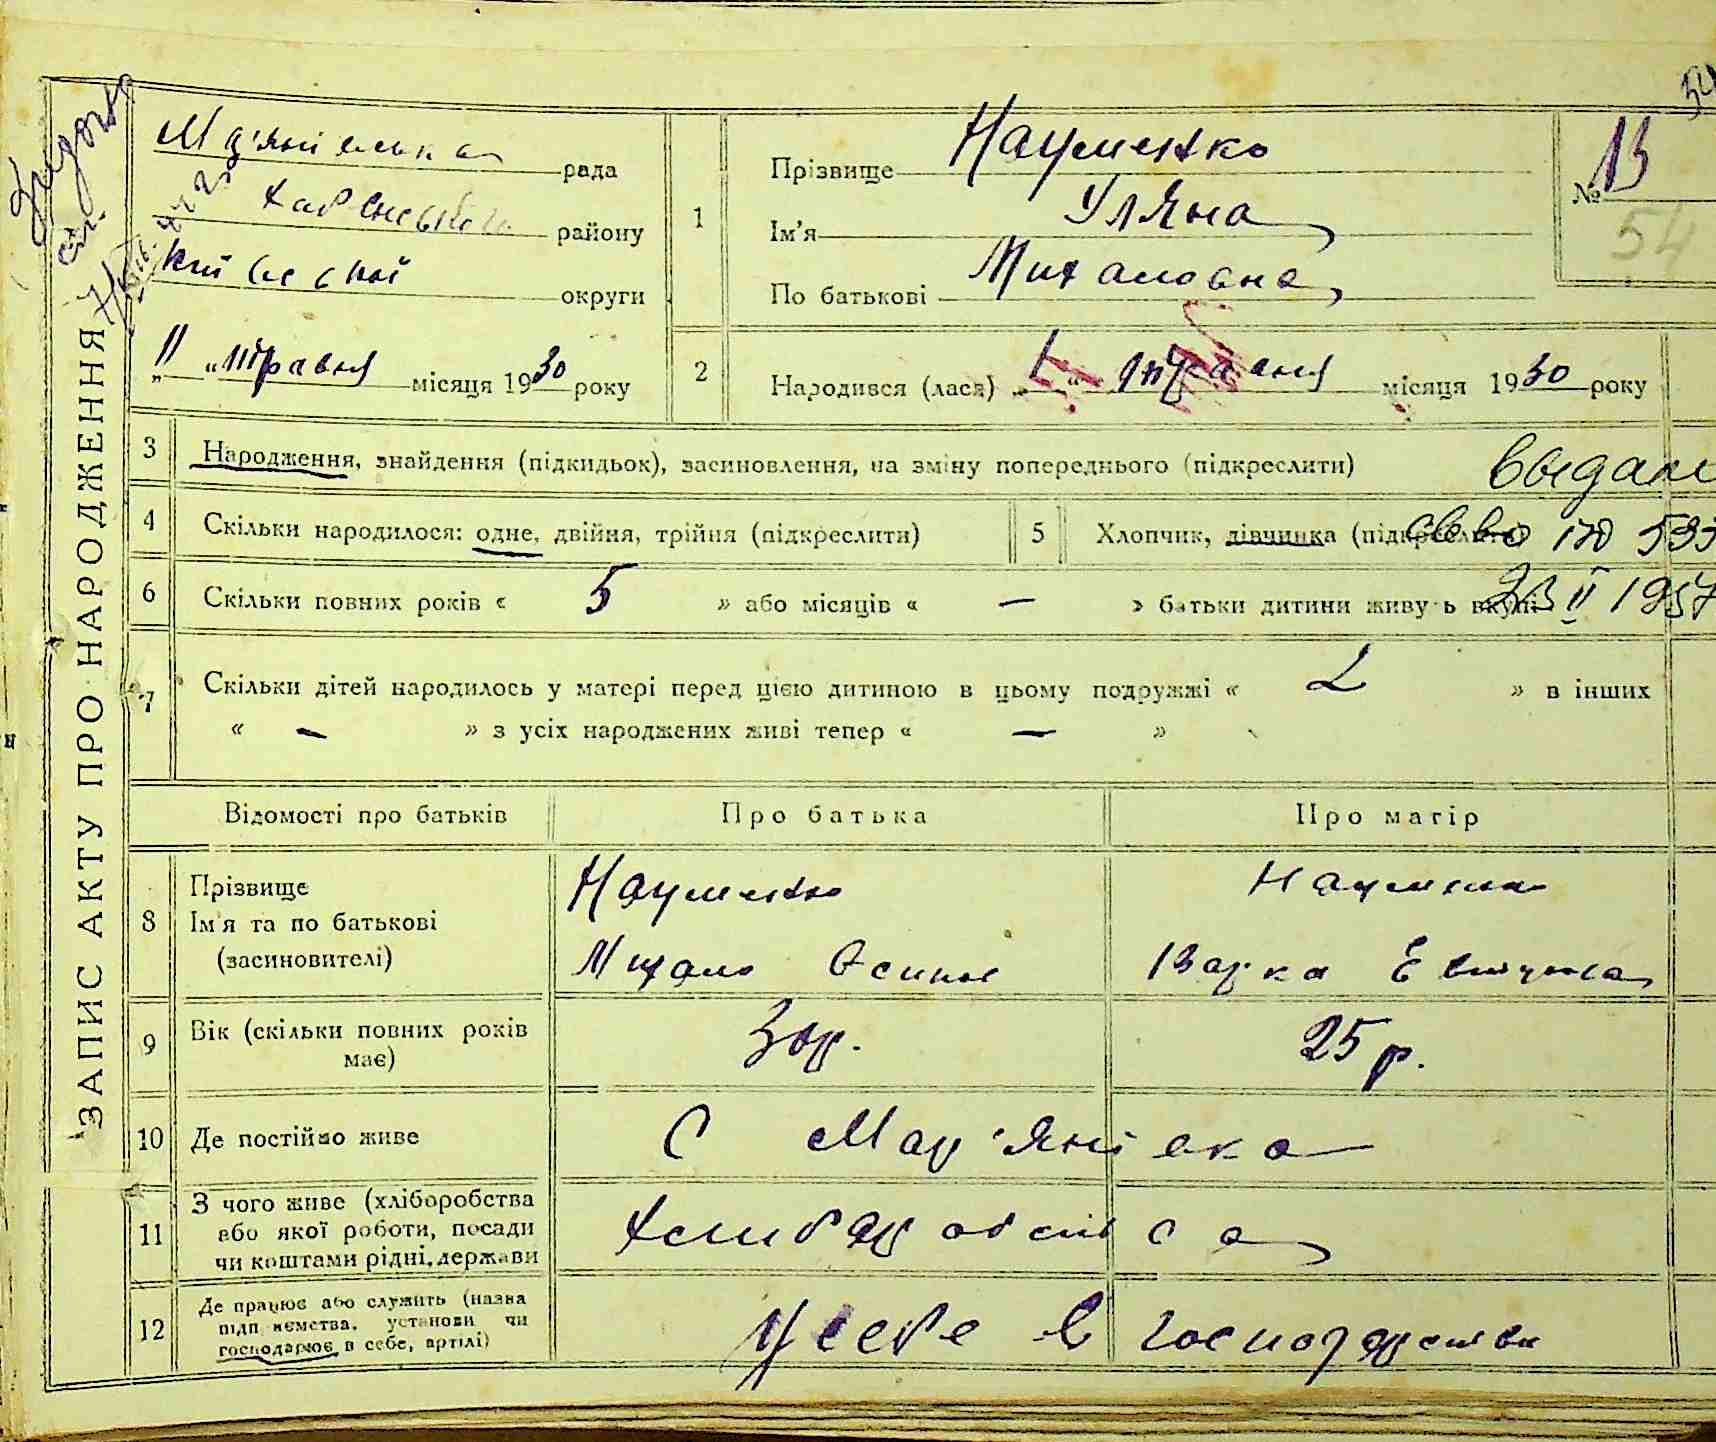 ЗАПИС АКТУ ПРО НАРОДЖЕННЯ
рада
району
округи
„11“ травня місяця 1930 року
1
Прізвище Науменко
Ім'я Уляна
По батькові Михайловна
№ 13
54
2
Народився (лася) „1“ травня місяця 1930 року
3 Народження, знайдення (підкидьок), засиновлення, на зміну попереднього (підкреслити)
4 Скільки народилося: одне, двійня, трійня (підкреслити)
5 Хлопчик, дівчинка
6 Скільки повних років « 5 » або місяців « — » батьки дитини живуть вкупі
23 II 1957
7 Скільки дітей народилось у матері перед цією дитиною в цьому подружжі « 2 » в інших
« — » з усіх народжених живі тепер « — »
Відомості про батьків
Про батька
Про матір
8
Прізвище
Ім'я та по батькові
(засиновителі)
Науменко
Науменко
Варка
9
Вік (скільки повних років
має)
30 р.
25 р.
10 Де постійно живе
С Мар'янівка
11
З чого живе (хліборобства
або якої роботи, посади
чи коштами рідні, держави
12
Де працює або служить (назва
підприємства, установи чи
господарює в себе, артілі)
У себе в господарстви